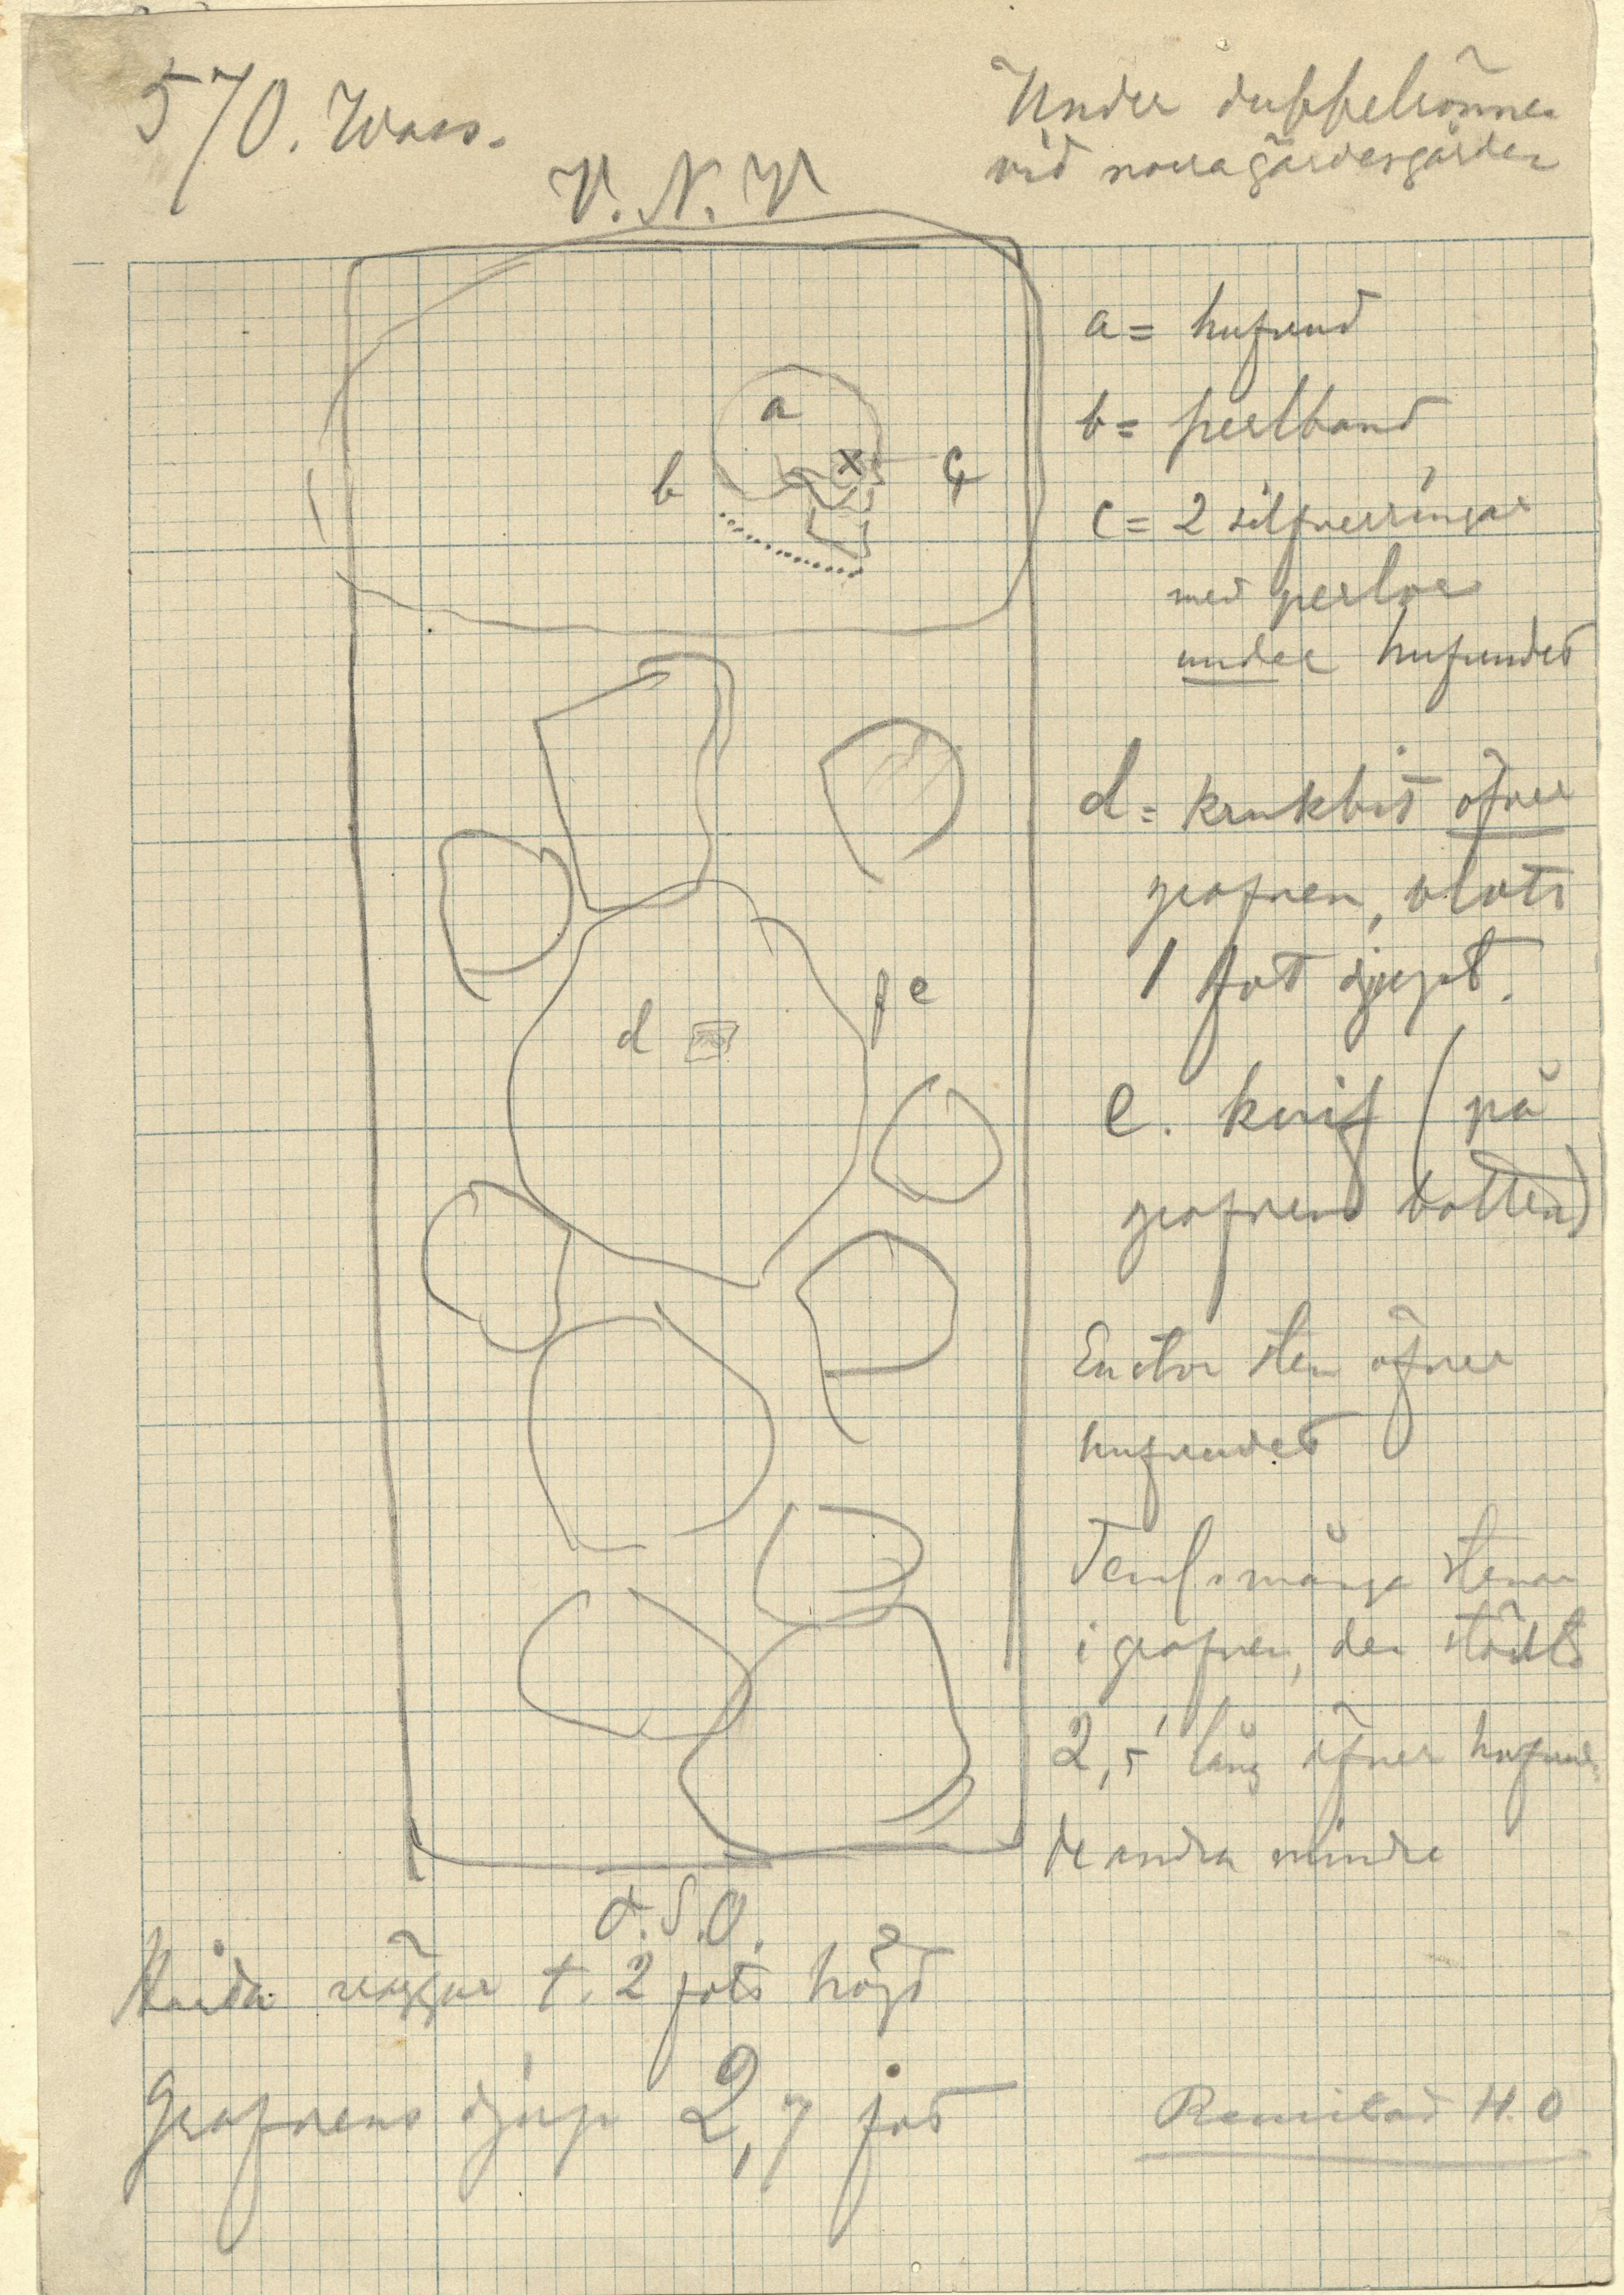 570.
Under dubbelrönnen
vid norra gärdesgården
V. N. V
a
b
c
a = hufvud
b = perlband
c = 2 silfverringar
med perlor
under hufvudet
d = krukbit öfver
grafven, blott
1 fot djupt.
d
e
e. knif (på
grafvens botten)
En stor sten öfver
hufvudet
många stenar
i grafven, den största
2,5' lång öfver hufvud
de andra mindre
O.S.O.
väggar t. 2 fots höjd
Grafvens djup 2,7 fot
Renritad H. O